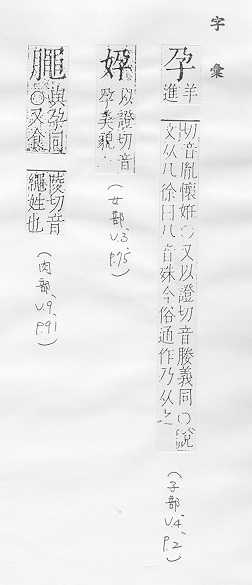 字彙
孕 羊進
切音胤懷妊○又以證切音媵義同○說
文从几徐曰几音殊今俗通作乃从之
(子部、V.4、P.2)
㛛 以證切音
孕美貌
(女部、V.3、P.75)
䏉 與孕同
○又食
陵切音
繩姓也
(肉部、V.9、P.91)